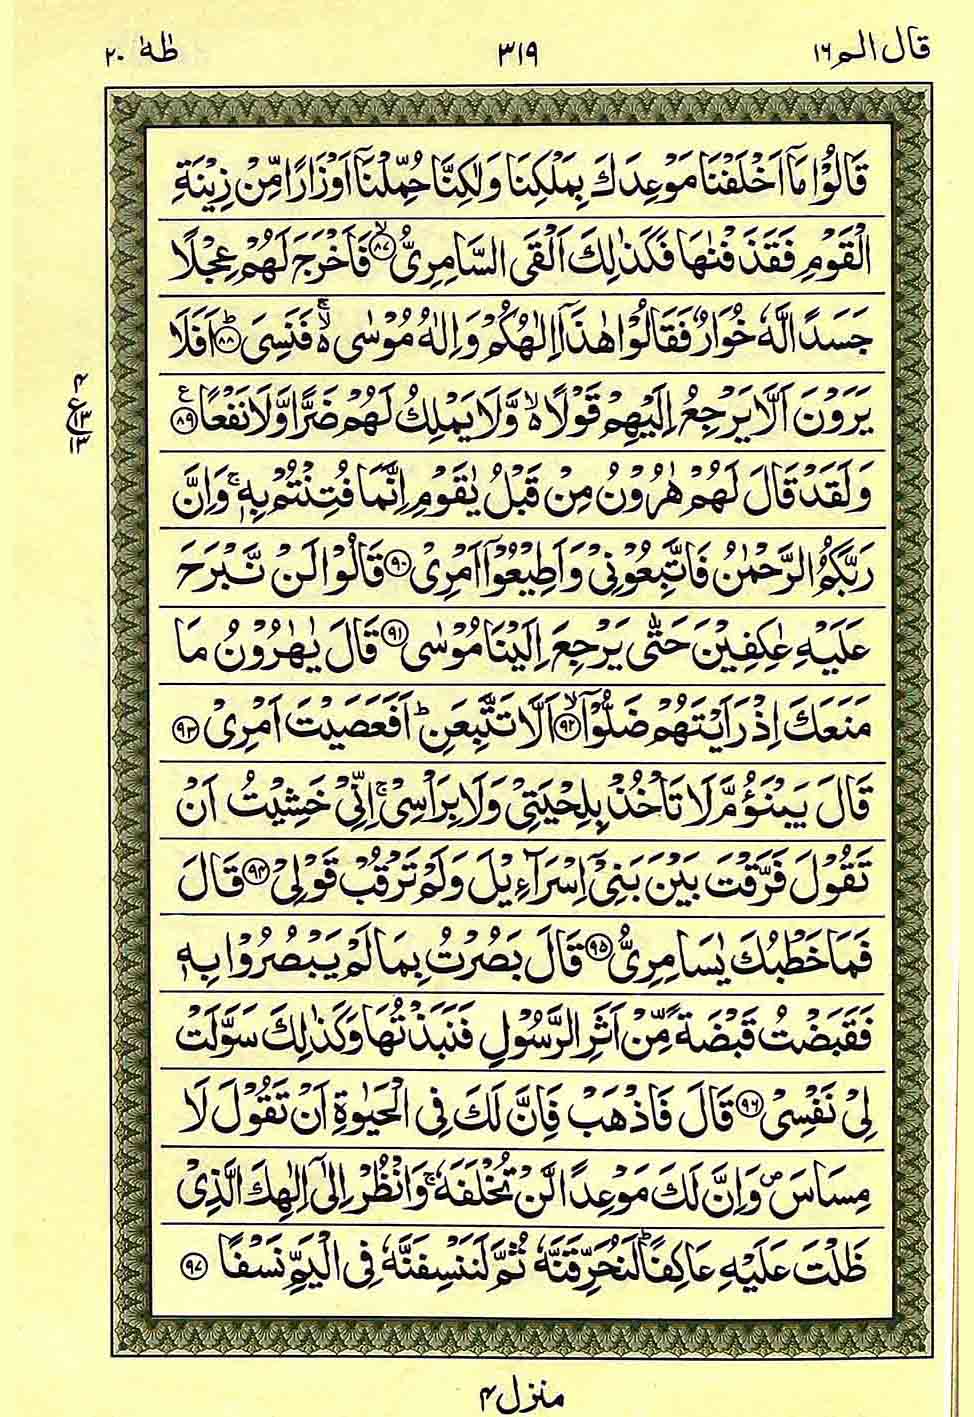 قال الم ١٦ ٣١٩ طٰهٰ ٢٠
قَالُوْا مَآ اَخْلَفْنَا مَوْعِدَكَ بِمَلْكِنَا وَلٰكِنَّا حُمِّلْنَآ اَوْزَارًا مِّنْ زِيْنَةِ
الْقَوْمِ فَقَذَفْنٰهَا فَكَذٰلِكَ اَلْقَى السَّامِرِىُّ ۙ‏﴿۸۷﴾ فَاَخْرَجَ لَهُمْ عِجْلًا
جَسَدًا لَّهٗ خُوَارٌ فَقَالُوْا هٰذَآ اِلٰهُكُمْ وَاِلٰهُ مُوْسٰى ۬ ۚ فَنَسِىَ ؕ‏﴿۸۸﴾ اَفَلَا
يَرَوْنَ اَلَّا يَرْجِعُ اِلَيْهِمْ قَوْلًا ۙ۬ وَّلَا يَمْلِكُ لَهُمْ ضَرًّا وَّلَا نَفْعًا ﴿۸۹﴾ ع
٤
ع ١٣
١٣
وَلَقَدْ قَالَ لَهُمْ هٰرُوْنُ مِنْ قَبْلُ يٰقَوْمِ اِنَّمَا فُتِنْتُمْ بِهٖ ۚ وَاِنَّ
رَبَّكُمُ الرَّحْمٰنُ فَاتَّبِعُوْنِىْ وَاَطِيْعُوْٓا اَمْرِىْ ﴿۹۰﴾ قَالُوْا لَنْ نَّبْرَحَ
عَلَيْهِ عٰكِفِيْنَ حَتّٰى يَرْجِعَ اِلَيْنَا مُوْسٰى ﴿۹۱﴾ قَالَ يٰهٰرُوْنُ مَا
مَنَعَكَ اِذْ رَاَيْتَهُمْ ضَلُّوْٓا ۙ‏﴿۹۲﴾ اَلَّا تَتَّبِعَنِ ؕ اَفَعَصَيْتَ اَمْرِىْ ﴿۹۳﴾
قَالَ يَبْنَؤُمَّ لَا تَاْخُذْ بِلِحْيَتِىْ وَلَا بِرَاْسِىْ ۚ اِنِّىْ خَشِيْتُ اَنْ
تَقُوْلَ فَرَّقْتَ بَيْنَ بَنِىْٓ اِسْرَآءِيْلَ وَلَمْ تَرْقُبْ قَوْلِىْ ﴿۹۴﴾ قَالَ
فَمَا خَطْبُكَ يٰسَامِرِىُّ ﴿۹۵﴾ قَالَ بَصُرْتُ بِمَا لَمْ يَبْصُرُوْا بِهٖ
فَقَبَضْتُ قَبْضَةً مِّنْ اَثَرِ الرَّسُوْلِ فَنَبَذْتُهَا وَكَذٰلِكَ سَوَّلَتْ
لِىْ نَفْسِىْ ﴿۹۶﴾ قَالَ فَاذْهَبْ فَاِنَّ لَكَ فِى الْحَيٰوةِ اَنْ تَقُوْلَ لَا
مِسَاسَ ۪ وَاِنَّ لَكَ مَوْعِدًا لَّنْ تُخْلَفَهٗ ۚ وَانْظُرْ اِلٰٓى اِلٰهِكَ الَّذِىْ
ظَلْتَ عَلَيْهِ عَاكِفًا ؕ لَنُحَرِّقَنَّهٗ ثُمَّ لَنَنْسِفَنَّهٗ فِى الْيَمِّ نَسْفًا ﴿۹۷﴾
منزل ٤